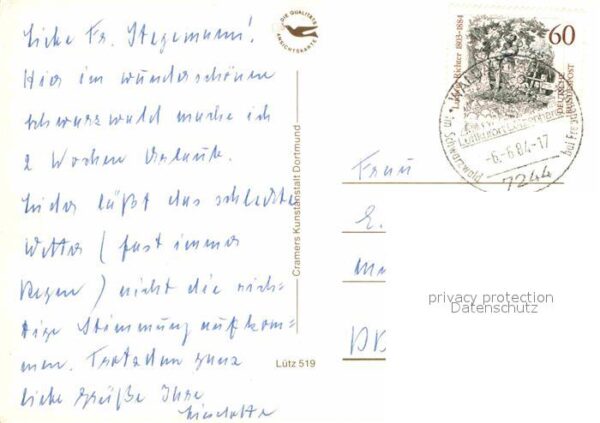 Liebe Fr. Stegemann!
Hier im wunderschönen
Schwarzwald mache ich
2 Wochen Urlaub.
Leider läßt das schlechte
Wetter (fast immer
Regen) nicht die rich-
tige Stimmung aufkom-
men. Trotzdem ganz
liebe Grüße Ihre
Lieselotte
DIE QUALITÄTS
ANSICHTSKARTE
Cramers Kunstanstalt Dortmund
Lütz 519
Ludwig Richter 1803-1884
60
DEUTSCHE
BUNDESPOST
im Schwarzwald
bei Freudenst
-6.-6.84-17
7244
Frau
E.
privacy protection
Datenschutz